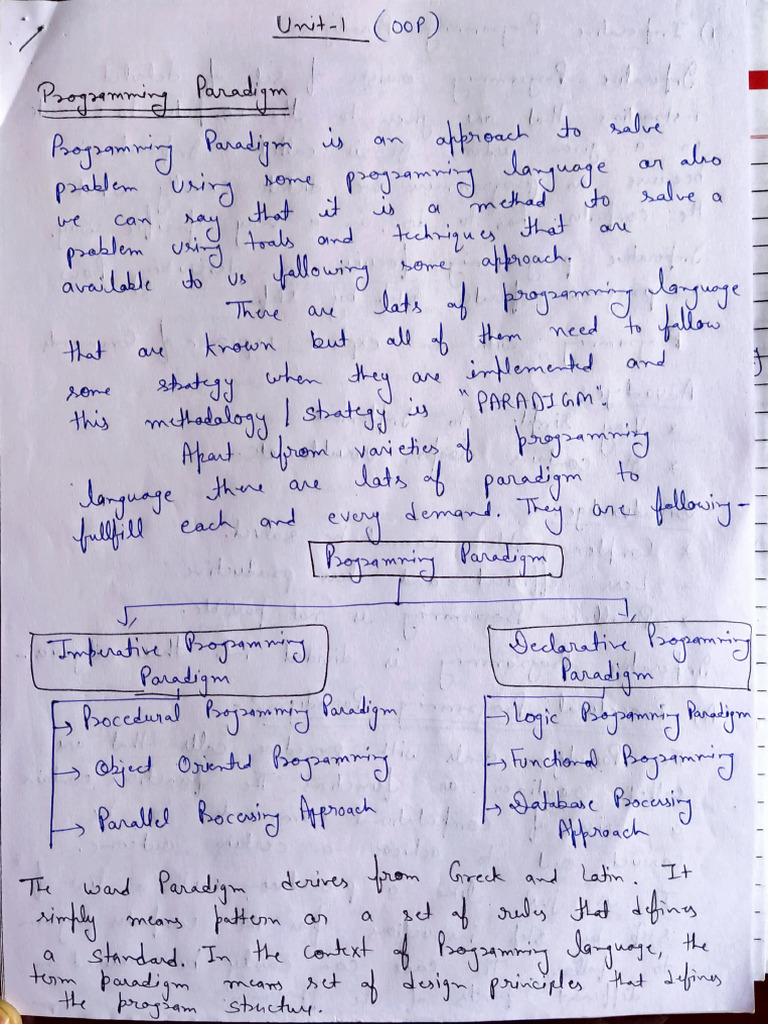 Unit-1 (OOP)
Programming Paradigm
Programming Paradigm is an approach to solve
problem using some programming language or also
we can say that it is a method to solve a
problem using tools and techniques that are
available to us following some approach.
There are lots of programming language
that are known but all of them need to follow
some strategy when they are implemented and
this methodology / strategy is "PARADIGM".
Apart from varieties of programming
language there are lots of paradigm to
fullfill each and every demand. They are following-
Programming Paradigm
Imperative Programming
Paradigm
Declarative Programming
Paradigm
→ Procedural Programming Paradigm
→ Object Oriented Programming
→ Parallel Processing Approach
→ Logic Programming Paradigm
→ Functional Programming
→ Database Processing
Approach
The word Paradigm derives from Greek and Latin. It
simply means pattern or a set of rules that defines
a standard. In the context of Programming language, the
term paradigm means set of design principles that defines
the program structure.